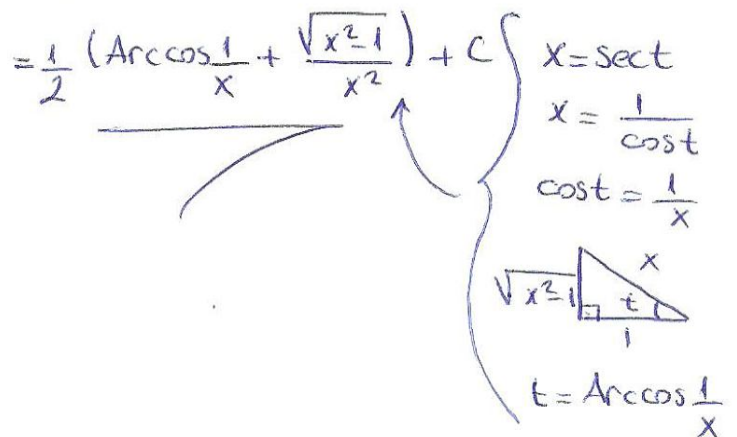 = 1/2 (Arccos 1/x + √(x²-1)/x²) + C
x = sect
x = 1/cost
cost = 1/x
√(x²-1) x t 1
t = Arccos 1/x